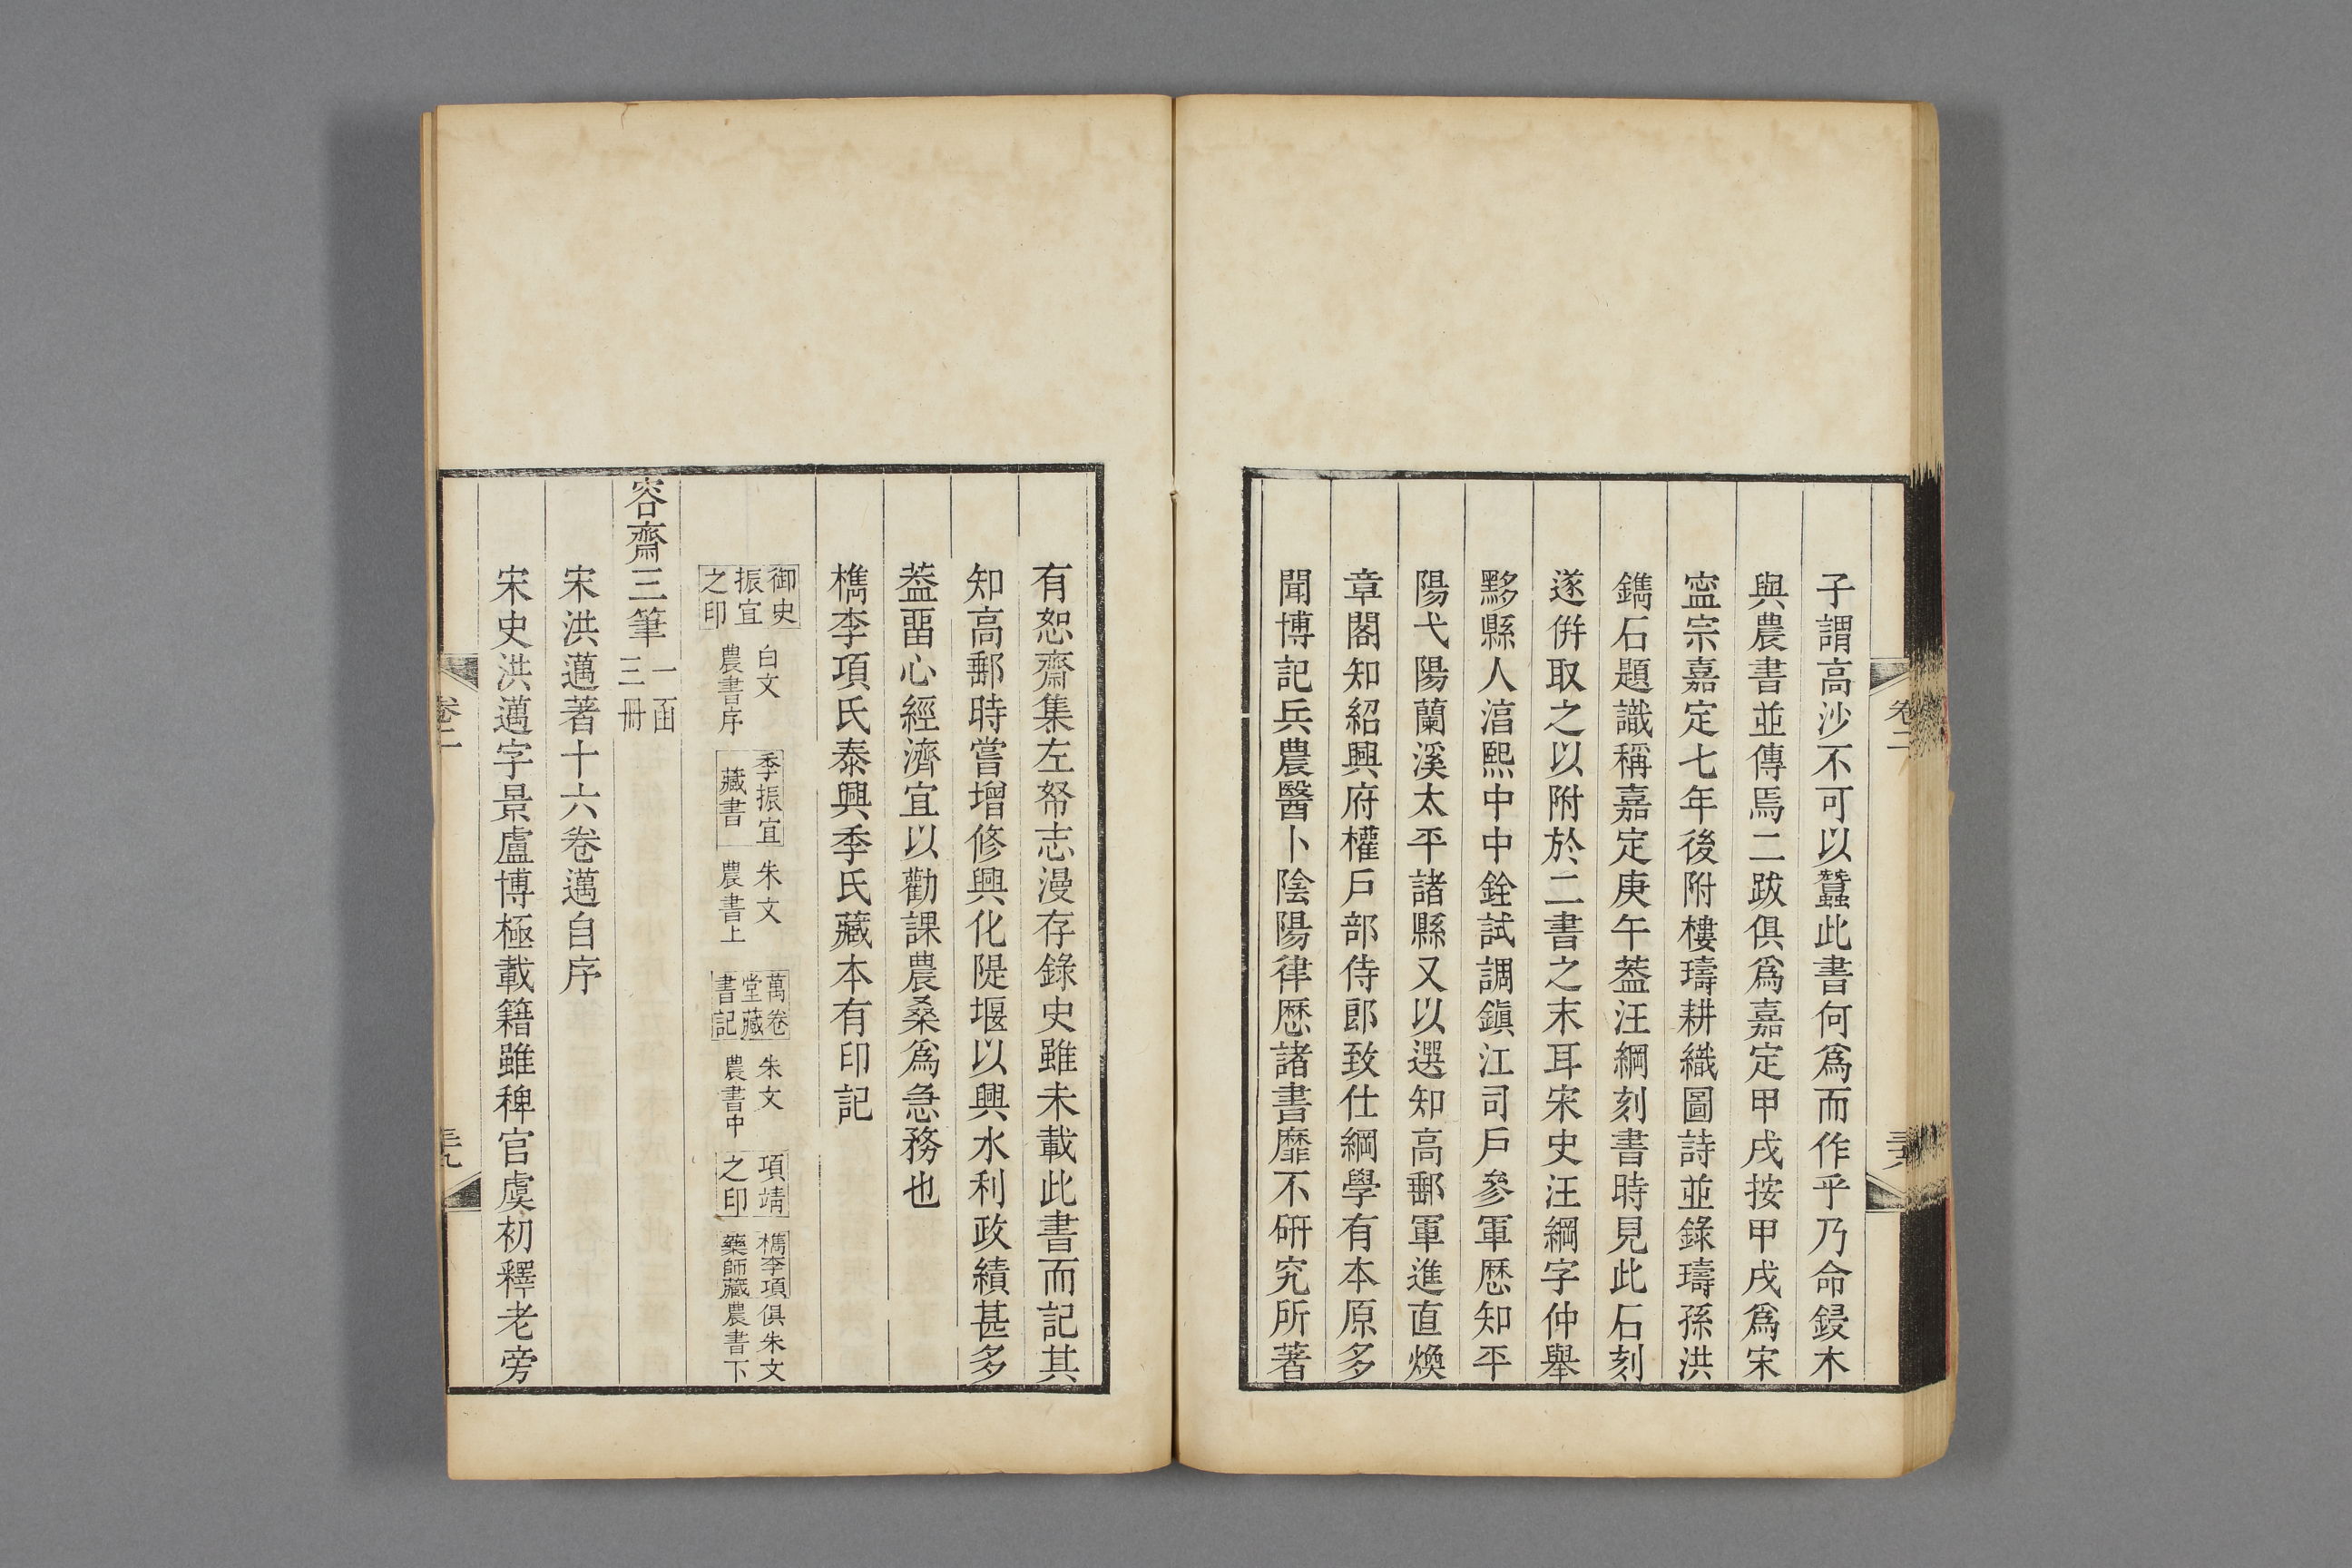 子謂高沙不可以蠶此書何爲而作乎乃命鋟木
與農書並傳焉二跋俱爲嘉定甲戌按甲戌爲宋
寍宗嘉定七年後附樓璹耕織圖詩並錄璹孫洪
鐫石題識稱嘉定庚午葢汪綱刻書時見此石刻
遂倂取之以附於二書之末耳宋史汪綱字仲舉
黟縣人湻熙中中銓試調鎭江司戶參軍歷知平
陽弋陽蘭溪太平諸縣又以選知高郵軍進直煥
章閣知紹興府權戶部侍郎致仕綱學有本原多
聞博記兵農醫卜陰陽律歷諸書靡不硏究所著
有恕齋集左帑志漫存錄史雖未載此書而記其
知高郵時嘗增修興化隄堰以興水利政績甚多
葢畱心經濟宜以勸課農桑爲急務也
檇李項氏泰興季氏藏本有印記
御史
振宜
之印
白文
農書序
季振宜
藏書
朱文
農書上
萬卷
堂藏
書記
朱文
農書中
項靖
之印
檇李項
藥師藏
俱朱文
農書下
容齋三筆
一函
三冊
宋洪邁著十六卷邁自序
宋史洪邁字景盧博極載籍雖稗官虞初釋老旁
卷二